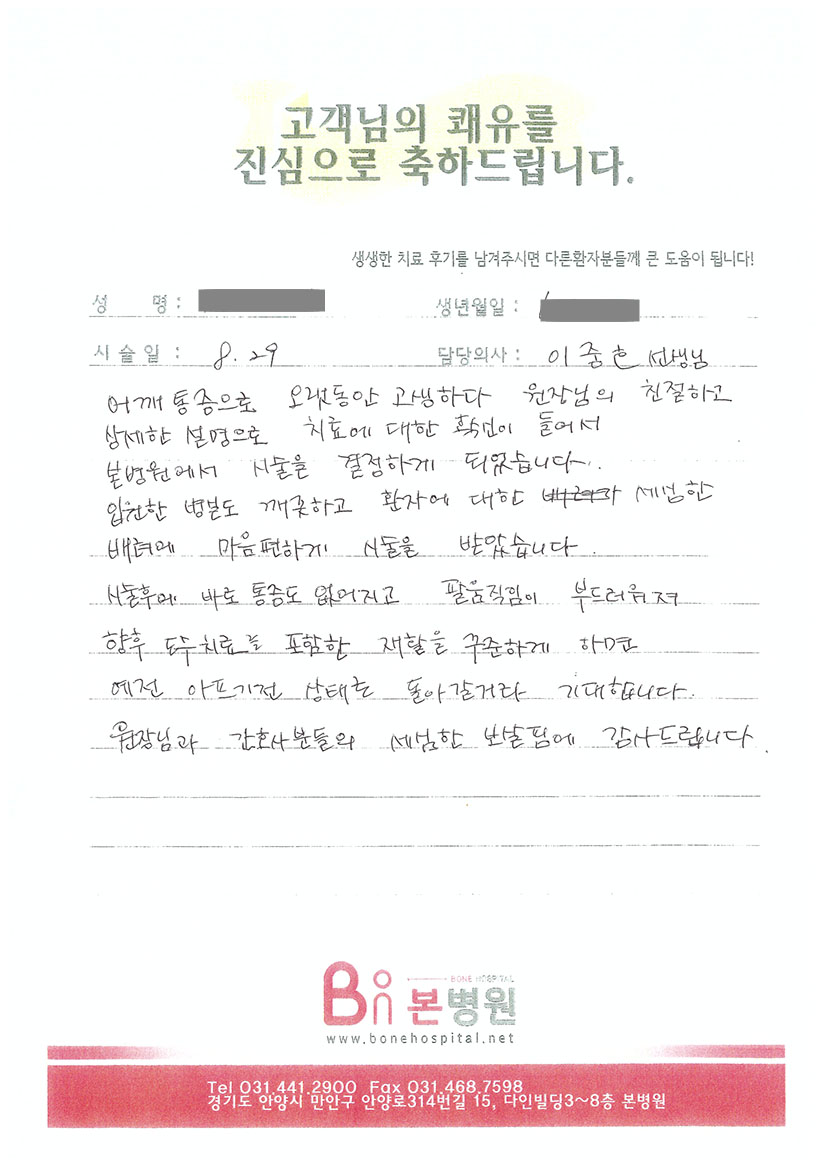 고객님의 쾌유를
진심으로 축하드립니다.
생생한 치료 후기를 남겨주시면 다른환자분들께 큰 도움이 됩니다!
성 명 : 생년월일 :
시 술 일 : 8. 29 담당의사 : 이중흔 선생님
어깨 통증으로 오랫동안 고생하다 원장님의 친절하고
상세한 설명으로 치료에 대한 확신이 들어서
본병원에서 시술을 결정하게 되었습니다.
입원한 병실도 깨끗하고 환자에 대한 세심한
배려에 마음편하게 시술을 받았습니다.
시술후에 바로 통증도 없어지고 팔움직임이 부드러워져
향후 도수치료를 포함한 재활을 꾸준하게 하면
예전 아프기전 상태로 돌아갈거라 기대합니다.
원장님과 간호사분들의 세심한 보살핌에 감사드립니다.
BONE HOSPITAL
Bon 본병원
www.bonehospital.net
Tel 031.441.2900 Fax 031.468.7598
경기도 안양시 만안구 안양로314번길 15, 다인빌딩3~8층 본병원